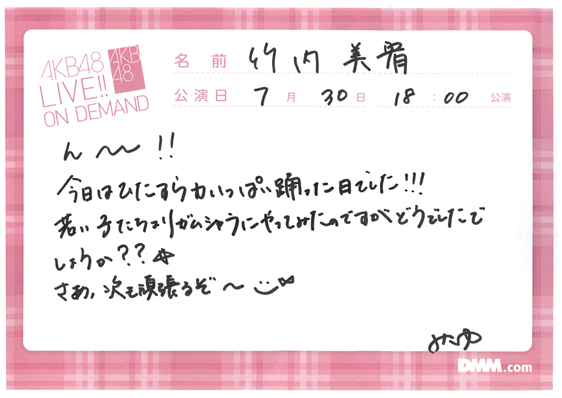 AKB48
LIVE!!
ON DEMAND
AKB
48
名前 竹内美宥
公演日 7月30日 18:00 公演
ん〜!!
今日はひたすら力いっぱい踊った日でした!!!
若い子たちよりガムシャラにやってみたのですがどうでしたで
しょうか??☆
さあ,次も頑張るぞ〜
みゆ
DMM.com